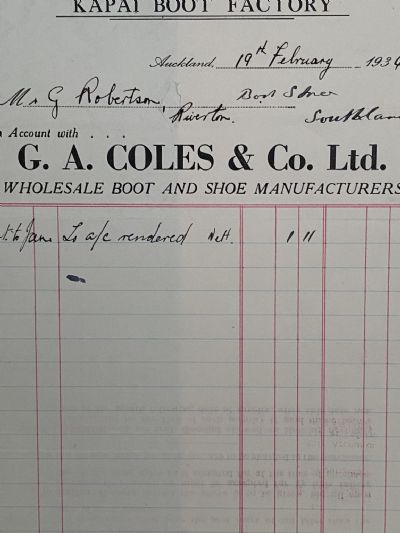 KAPAI BOOT FACTORY
Auckland, 19th February 193
Mr G Robertson, Boot Store
Riverton. Southlan
Account with . . .
G. A. COLES & Co. Ltd.
WHOLESALE BOOT AND SHOE MANUFACTURERS
to Jan To a/c rendered Nett. 1 11